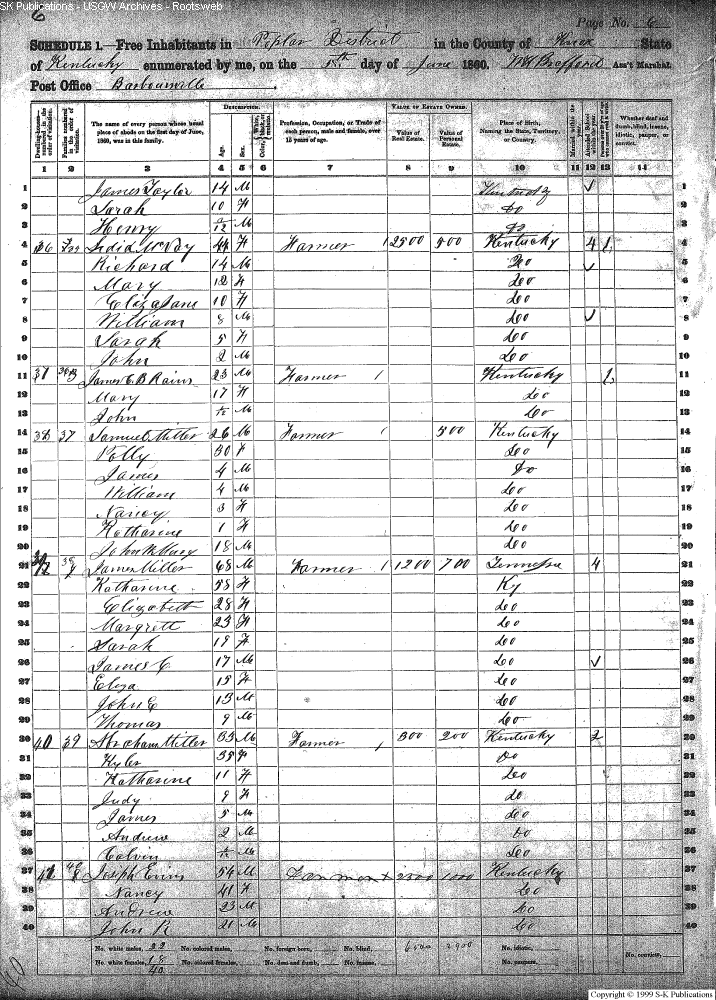 SK Publications - USGW Archives - Rootsweb
6
Page No. 6
SCHEDULE 1.—Free Inhabitants in Poplar District in the County of Knox State
of Kentucky enumerated by me, on the 5th day of June 1860. Ass't Marshal.
Post Office Barbourville
DESCRIPTION. VALUE OF ESTATE OWNED.
Dwelling-houses—numbered in the order of visitation. Families numbered in the order of visitation. The name of every person whose usual place of abode on the first day of June, 1860, was in this family. Age. Sex. Color, White, black, or mulatto. Profession, Occupation, or Trade of each person, male and female, over 15 years of age. Value of Real Estate. Value of Personal Estate. Place of Birth, Naming the State, Territory, or Country. Married within the year. Attended School within the year. Whether deaf and dumb, blind, insane, idiotic, pauper, or convict.
1 2 3 4 5 6 7 8 9 10 11 12 13 14
1 James Taylor 14 M Kentucky ✓ 1
2 Sarah 10 F Do 2
3 Henry /12 M Do 3
4 36 McVay 44 F Farmer 1 2500 500 Kentucky 4 1 4
5 Richard 14 M Do ✓ 5
6 Mary 12 F Do 6
7 Eliza Jane 10 F Do 7
8 William 8 M Do ✓ 8
9 Sarah 5 F Do 9
10 John 2 M Do 10
11 37 36 James C B Rains 23 M Farmer 1 Kentucky 1 11
12 Mary 17 F Do 12
13 John /12 M Do 13
14 38 37 Samuel Miller 26 M Farmer 1 500 Kentucky 14
15 Polly 30 F Do 15
16 James 4 M Do 16
17 William 4 M Do 17
18 Nancy 3 F Do 18
19 Katharine 1 F Do 19
20 John 18 M Do 20
21 James Miller 68 M Farmer 1 1200 700 Tennessee 4 21
22 Katharine 58 F Ky 22
23 Elizabeth 28 F Do 23
24 Margrett 23 F Do 24
25 Sarah 19 F Do 25
26 James C 17 M Do ✓ 26
27 Eliza 15 F Do 27
28 John E 13 M Do 28
29 Thomas 9 M Do 29
30 40 39 Abraham Miller 33 M Farmer 1 300 200 Kentucky 2 30
31 35 F Do 31
32 Katharine 11 F Do 32
33 Judy 9 F do 33
34 James 5 M do 34
35 Andrew 2 M Do 35
36 Calvin /12 M Do 36
37 41 40 Joseph Evins 54 M 2500 1000 Kentucky 37
38 Nancy 41 F Do 38
39 Andrew 23 M Do 39
40 John R 21 M Do 40
No. white males, 22 No. colored males, No. foreign born, No. blind, 6500 2900 No. idiotic,
No. white females, 18 No. colored females, No. deaf and dumb, No. insane, No. paupers, No. convicts,
40
Copyright © 1999 S-K Publications